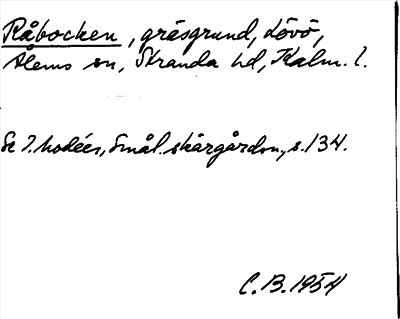 Råbocken, gräsgrund, Lövö,
Ålems sn, Stranda hd, Kalm. l.
Se I. Modéer, Smål. skärgården, s. 134.
C. B. 1954